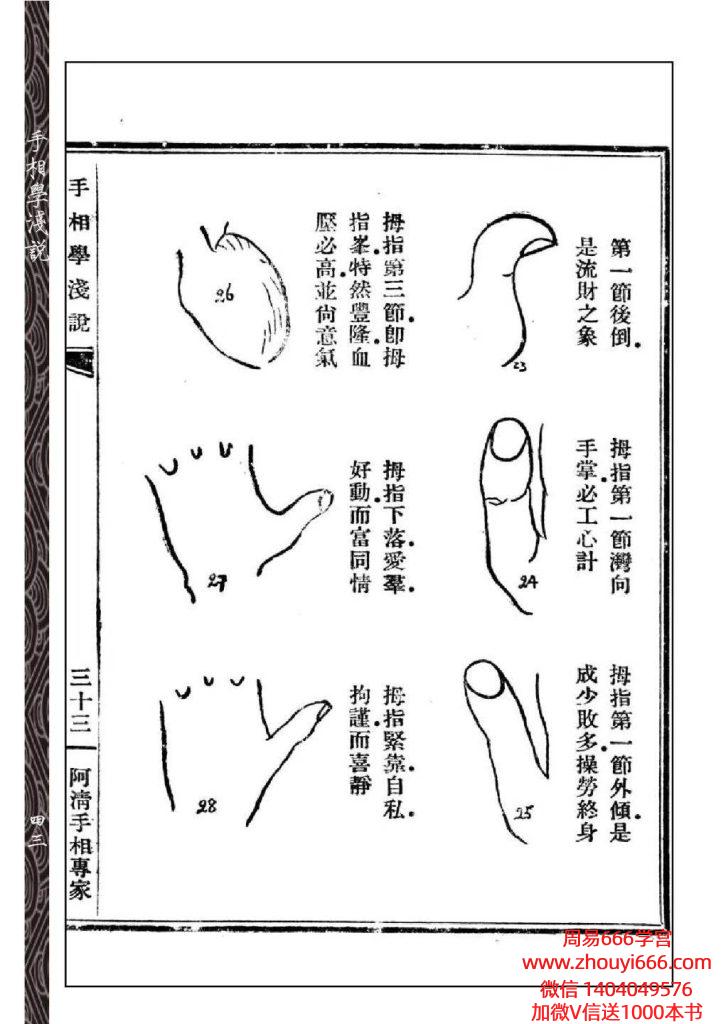 手相學淺説
四三
第一節後倒.
是流財之象
23
拇指第一節灣向
手掌.必工心計
24
拇指第一節外傾.是
成少敗多.操勞終身
25
拇指第三節.卽拇
指峯.特然豐隆.血
壓必高.並尙意氣
26
拇指下落.愛羣.
好動.而富同情
27
拇指緊靠.自私.
拘謹.而喜靜
28
手相學淺説
三十三
阿淸手相專家
周易666学宫
www.zhouyi666.com
微信 1404049576
加微V信送1000本书